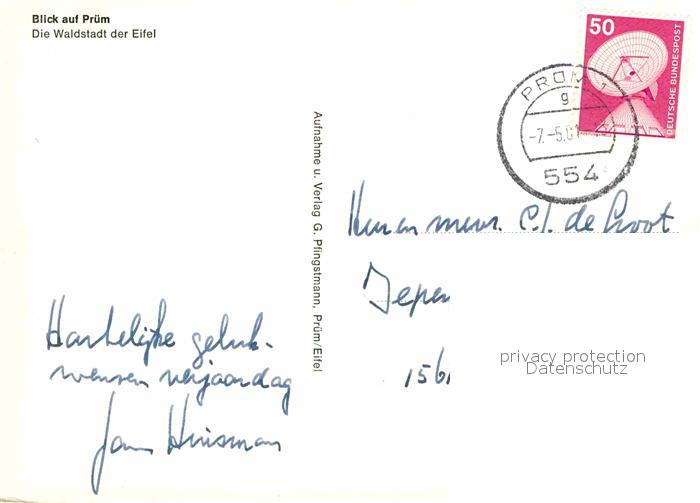 Blick auf Prüm
Die Waldstadt der Eifel
50
DEUTSCHE BUNDESPOST
PRÜM 1
g
-7.-5.81
554
Aufnahme u. Verlag G. Pfingstmann, Prüm/Eifel
Heer en mevr. C.J. de Groot
privacy protection
Datenschutz
Hartelijke geluk-
wensen verjaardag
Jan Huisman